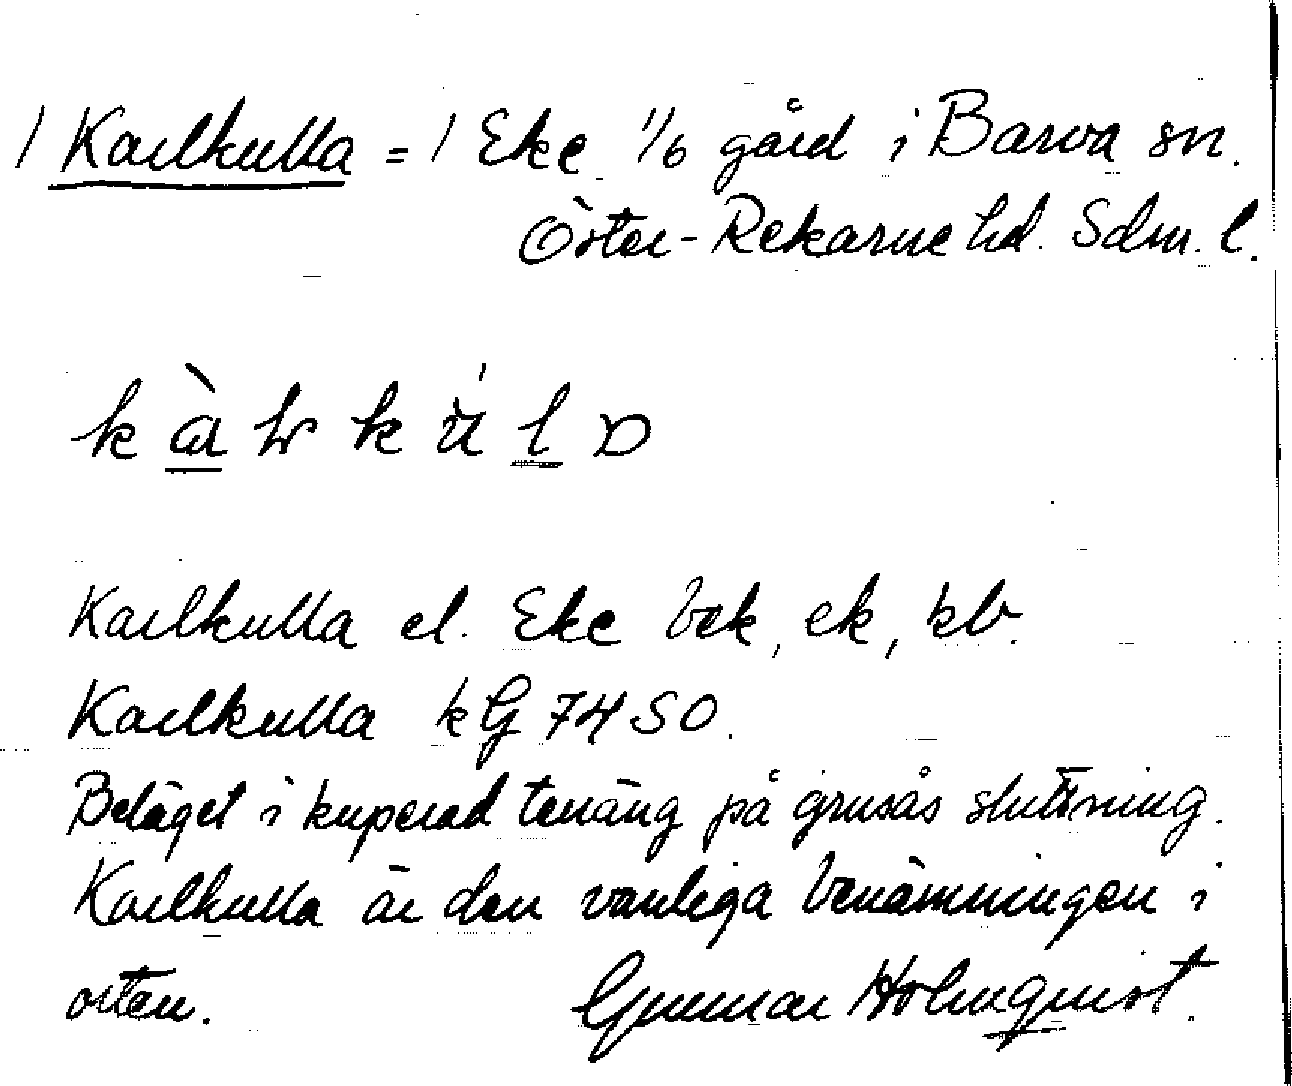 / Karlkulla = / Eke 1/6 gård i Barva sn.
Öster-Rekarne hd. Sdm. l.
Karlkulla el. Eke bek, ek, kb.
Karlkulla kG 74 SO.
Beläget i kuperad terräng på grusås sluttning.
Karlkulla är den vanliga benämningen i
orten. Gunnar Holmquist.